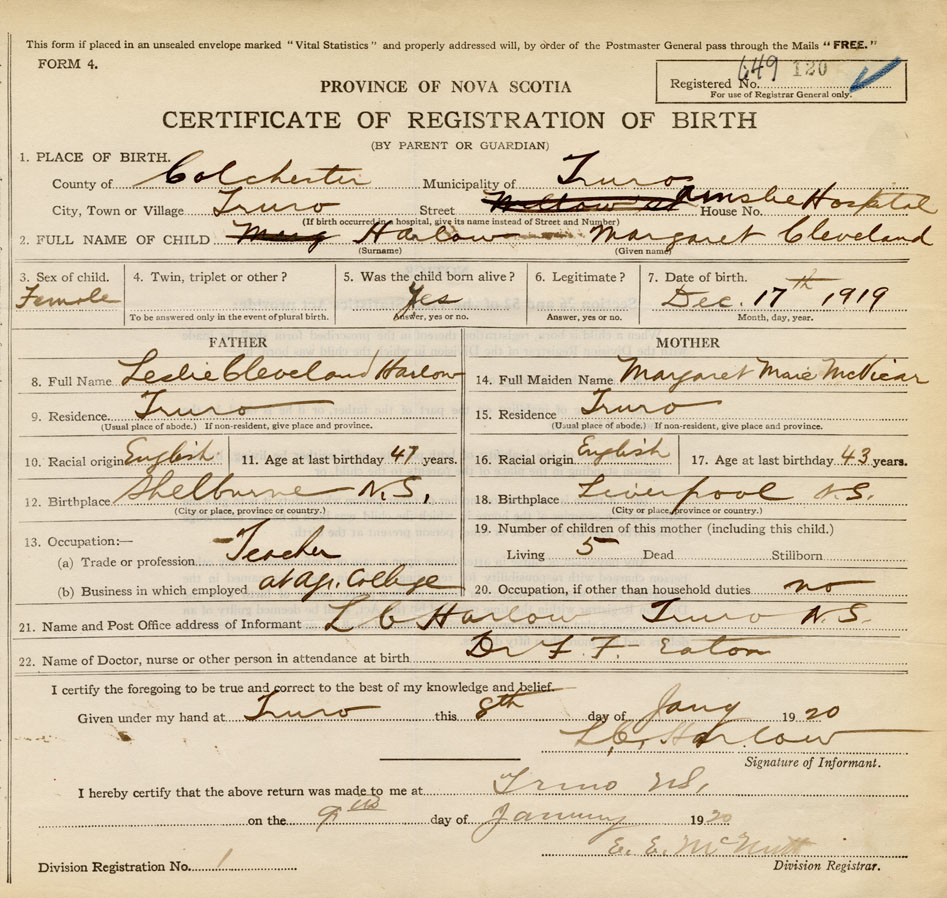 This form if placed in an unsealed envelope marked "Vital Statistics" and properly addressed will, by order of the Postmaster General pass through the Mails "FREE."
FORM 4.
649 120
Registered No.
For use of Registrar General only.
PROVINCE OF NOVA SCOTIA
CERTIFICATE OF REGISTRATION OF BIRTH
(BY PARENT OR GUARDIAN)
1. PLACE OF BIRTH.
County of Colchester Municipality of Truro
City, Town or Village Truro Street Willow St Ainslie Hospital House No.
(If birth occurred in a hospital, give its name instead of Street and Number)
2. FULL NAME OF CHILD Harlow Margaret Cleveland
(Surname) (Given name)
3. Sex of child. 4. Twin, triplet or other? 5. Was the child born alive? 6. Legitimate? 7. Date of birth.
Female Yes Dec. 17th 1919
To be answered only in the event of plural birth. Answer, yes or no. Answer, yes or no. Month, day, year.
FATHER MOTHER
8. Full Name Leslie Cleveland Harlow 14. Full Maiden Name Margaret Marie McVicar
9. Residence. Truro 15. Residence Truro
(Usual place of abode.) If non-resident, give place and province. (Usual place of abode.) If non-resident, give place and province.
10. Racial origin English 11. Age at last birthday 47 years. 16. Racial origin English 17. Age at last birthday 43 years.
12. Birthplace Shelburne N.S. 18. Birthplace Liverpool N.S.
(City or place, province or country.) (City or place, province or country.)
13. Occupation:— 19. Number of children of this mother (including this child.)
(a) Trade or profession Teacher Living 5 Dead Stillborn
(b) Business in which employed at Agr. College 20. Occupation, if other than household duties no
21. Name and Post Office address of Informant L C Harlow Truro N.S.
22. Name of Doctor, nurse or other person in attendance at birth Dr F. F. Eaton
I certify the foregoing to be true and correct to the best of my knowledge and belief.
Given under my hand at Truro this 8th day of Jany 1920
L.C. Harlow
Signature of Informant.
I hereby certify that the above return was made to me at Truro N.S.
on the 9th day of January 1920
E. E. McNutt
Division Registration No. 1 Division Registrar.